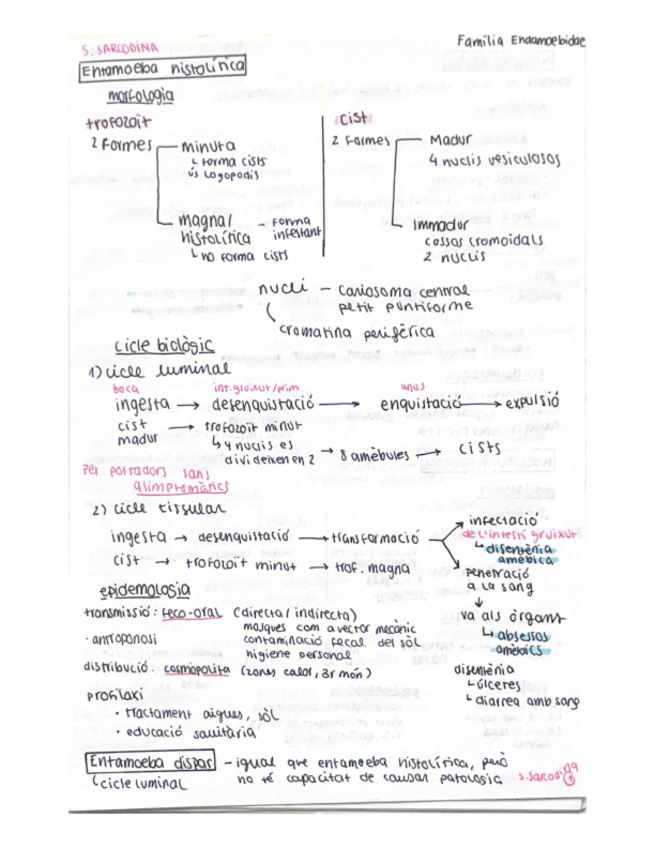 S. SARCODINA
Família Endamoebidae
Entamoeba histolítica
morfologia
trofozoït
cist
2 formes
minuta
↳ forma cists
ús logopodis
magna/
histolítica
- forma
infestant
↳ no forma cists
2 formes
Madur
4 nuclis vesiculosos
Immadur
cossos cromoidals
2 nuclis
nucli - cariosoma central
petit puntiforme
cromatina perifèrica
cicle biològic
1) cicle luminal
boca
int. gruixut/prim
anus
ingesta → desenquistació → enquistació → expulsió
cist → trofozoït minut
madur
↳ 4 nuclis es
divideixen en 2 → 8 amèbules → cists
Per portadors sans
asimptomàtics
2) cicle tissular
ingesta → desenquistació → transformació
cist → trofozoït minut → trof. magna
infectació
de l'intestí gruixut
↳ disentènia
amèbica
penetració
a la sang
↓
va als òrgans
↳ absessos
amèbics
disentènia
↳ úlceres
↳ diarrea amb sang
epidemologia
transmissió: feco-oral (directa/indirecta)
mosques com a vector mecànic
· antroponosi
contaminació fecal del sòl
higiene personal
distribució: cosmopolita (zones calor, 3r món)
profilaxi
· tractament aigues, sòl
· educació sanitària
Entamoeba dispar - igual que entamoeba histolítica, però
no té capacitat de causar patologia
↳ cicle luminal
S. Sarcodina
1